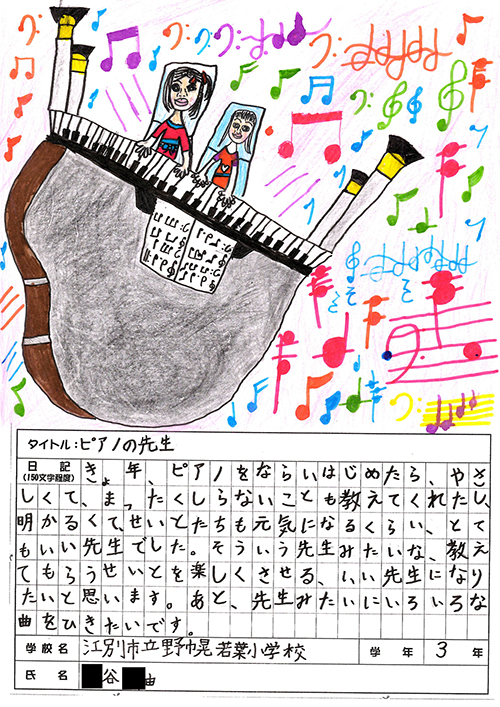 そ そ
そ
タイトル:ピアノの先生
日記
(150文字程度)
きょ年、ピアノをならいはじめたら、やさ
しくて、まったくしらないことも教えてくれたし、
明かるくて、せいとたちも元気になるくらい、とて
もいい先生でした。そういう先生みたいな、教え
てもらうせいとを楽しくさせる、いい先生になり
たいと思います。あと、先生みたいにいろいろな
曲をひきたいです。
学校名 江別市立野幌若葉小学校 学年 3年
氏名 谷 由